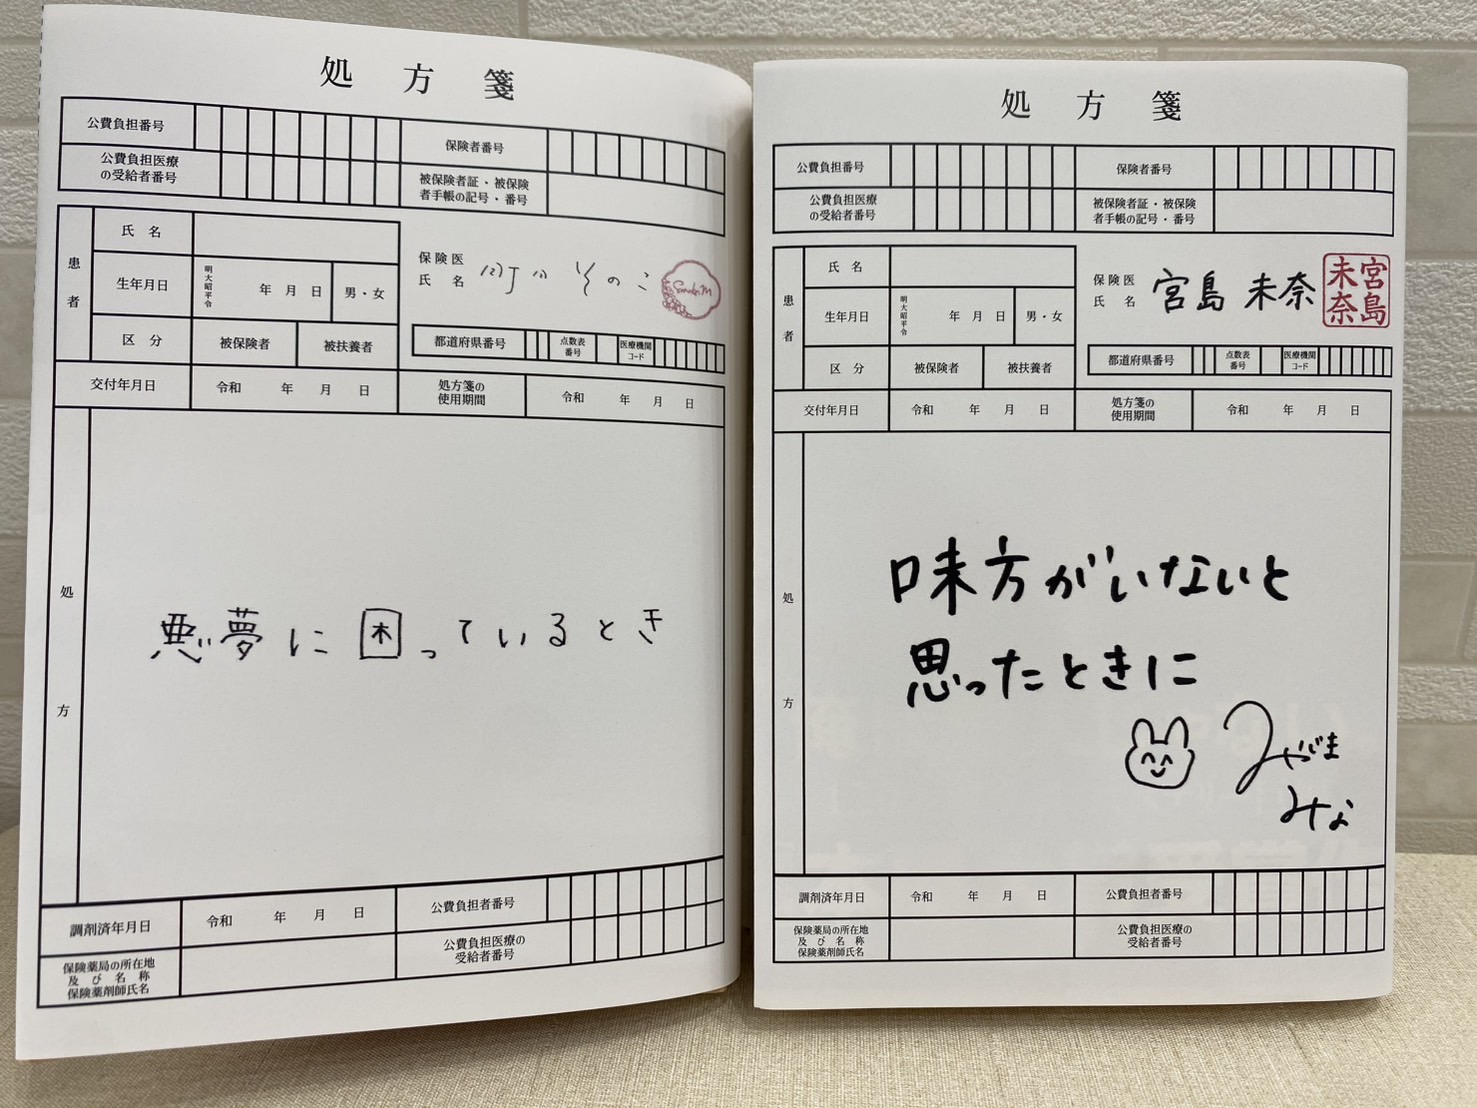 処方箋
公費負担番号
保険者番号
公費負担医療
の受給者番号
被保険者証・被保険
者手帳の記号・番号
患者
氏名
保険医
氏名
町田そのこ
生年月日
明大昭平令
年 月 日
男・女
区分
被保険者
被扶養者
都道府県番号
点数表
番号
医療機関
コード
交付年月日
令和 年 月 日
処方箋の
使用期間
令和 年 月 日
処方
悪夢に困っているとき
調剤済年月日
令和 年 月 日
公費負担者番号
保険薬局の所在地
及び名称
保険薬剤師氏名
公費負担医療の
受給者番号
処方箋
公費負担番号
保険者番号
公費負担医療
の受給者番号
被保険者証・被保険
者手帳の記号・番号
患者
氏名
保険医
氏名
宮島未奈
宮島
未奈
生年月日
明大昭平令
年 月 日
男・女
区分
被保険者
被扶養者
都道府県番号
点数表
番号
医療機関
コード
交付年月日
令和 年 月 日
処方箋の
使用期間
令和 年 月 日
処方
味方がいないと
思ったときに
みやじま
みな
調剤済年月日
令和 年 月 日
公費負担者番号
保険薬局の所在地
及び名称
保険薬剤師氏名
公費負担医療の
受給者番号